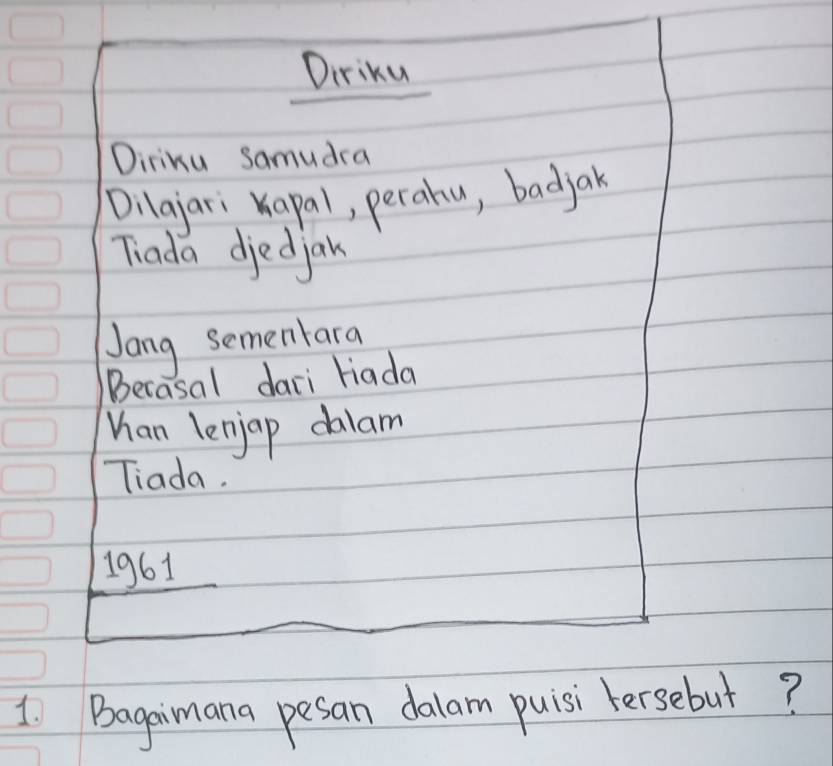 Diriku
Diriku samudra
Dilajari kapal, perahu, badjak
Tiada djedjak
Jang sementara
Berasal dari tiada
Kan lenjap dalam
Tiada.
1961
1. Bagaimana pesan dalam puisi tersebut ?